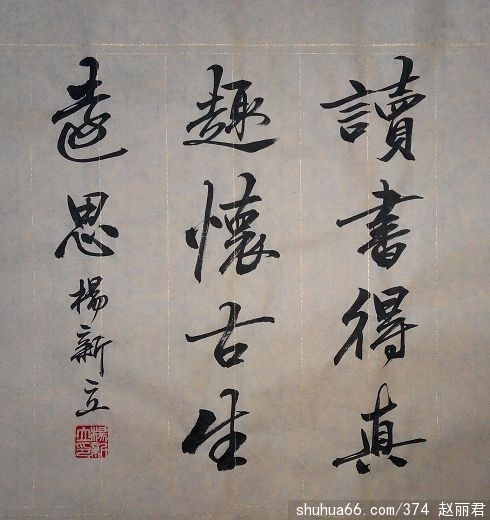 讀書得真
趣懷古生
遠思 楊新立
楊新立印
shuhua66.com/374 赵丽君